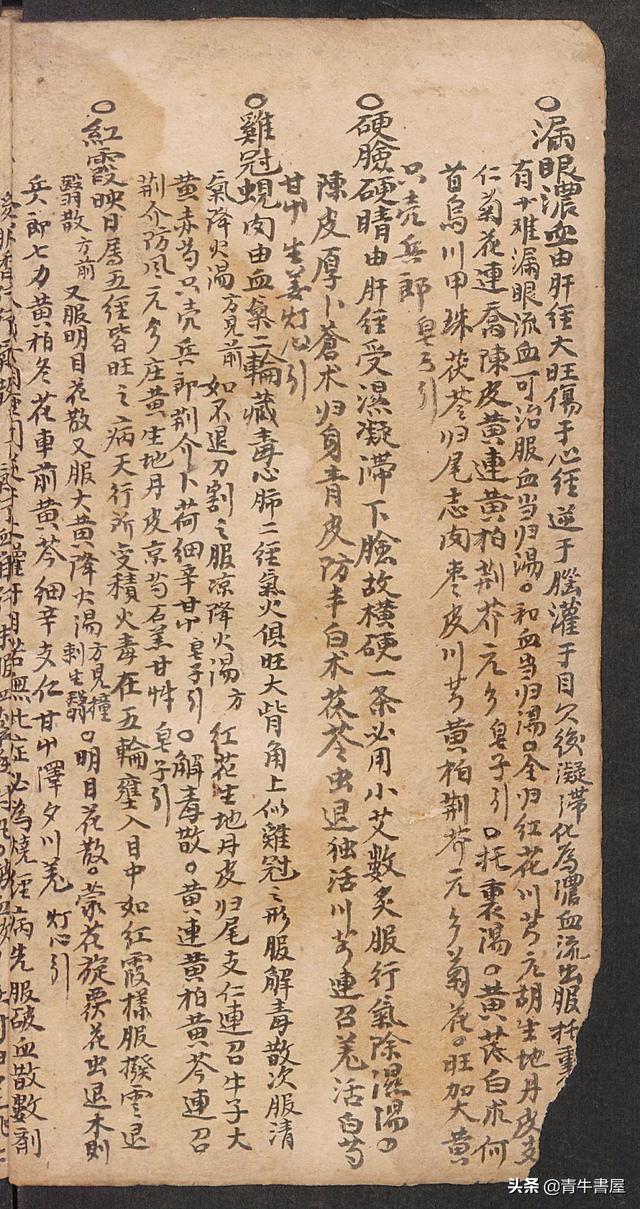 ○漏眼濃血由肝經大旺傷于心經逆于腦灌于目久後凝滯化為膿血流出服托裏
有水难漏眼流血可治服血当归湯。和血当归湯。全归红花川芎元胡生地丹皮支
仁菊花連喬陳皮黄連黄柏荆芥元参皂子引。托裏湯。黄芪白术何
首烏川甲珠茯苓归尾志肉枣皮川芎黄柏荆芥元参菊花。旺加大黄
只壳兵郎 皂子引
○硬臉硬睛由肝经受濕凝滞下臉故横硬一条必用小艾數炙服行氣除濕湯。
陳皮厚卜蒼术归身青皮防丰白术茯苓虫退独活川芎連召羌活白芍
甘中生姜灯心引
○雞冠蜆肉由血氣二輪藏毒心肺二经氣火俱旺大眥角上似雞冠之形服解毒散次服清
氣降火湯方見前 如不退刀割之服凉降火湯方 红花生地丹皮归尾支仁連召牛子大
黄赤芍只壳兵郎荆介卜荷细辛甘中皂子引。解毒散。黄連黄柏黄芩連召
荆介防风元参庄黄生地丹皮京芍石羔甘艸 皂子引
○紅霞映日属五经皆旺之病天行所受積火毒在五輪壅入目中如红霞様服撥雲退
翳散方前 又服明目花散又服大黄降火湯方見撞刺生翳。明目花散。蒙花旋覆花虫退木則
兵郎七力黄柏冬花車前黄芩细辛支仁甘中澤夕川羌 灯心引
無此症必為燒经病先服破血散數剂
头条 @青牛書屋